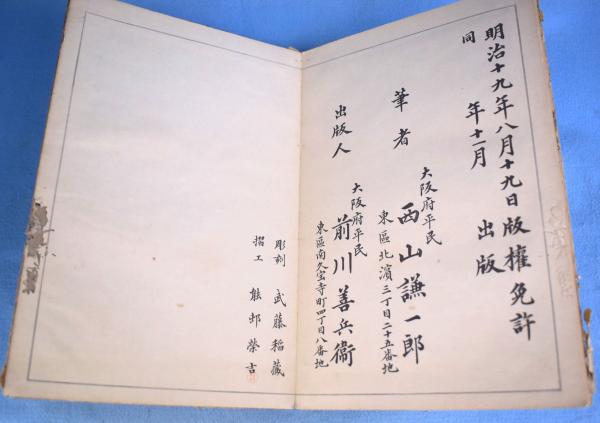 明治十九年八月十九日版權免許
同　年十一月　出版
筆者
大阪府平民
西山謙一郎
東區北濱三丁目二十五番地
出版人
大阪府平民
前川善兵衞
東區南久宝寺町四丁目八番地
彫刻　武藤稲藏
摺工　能邨榮吉